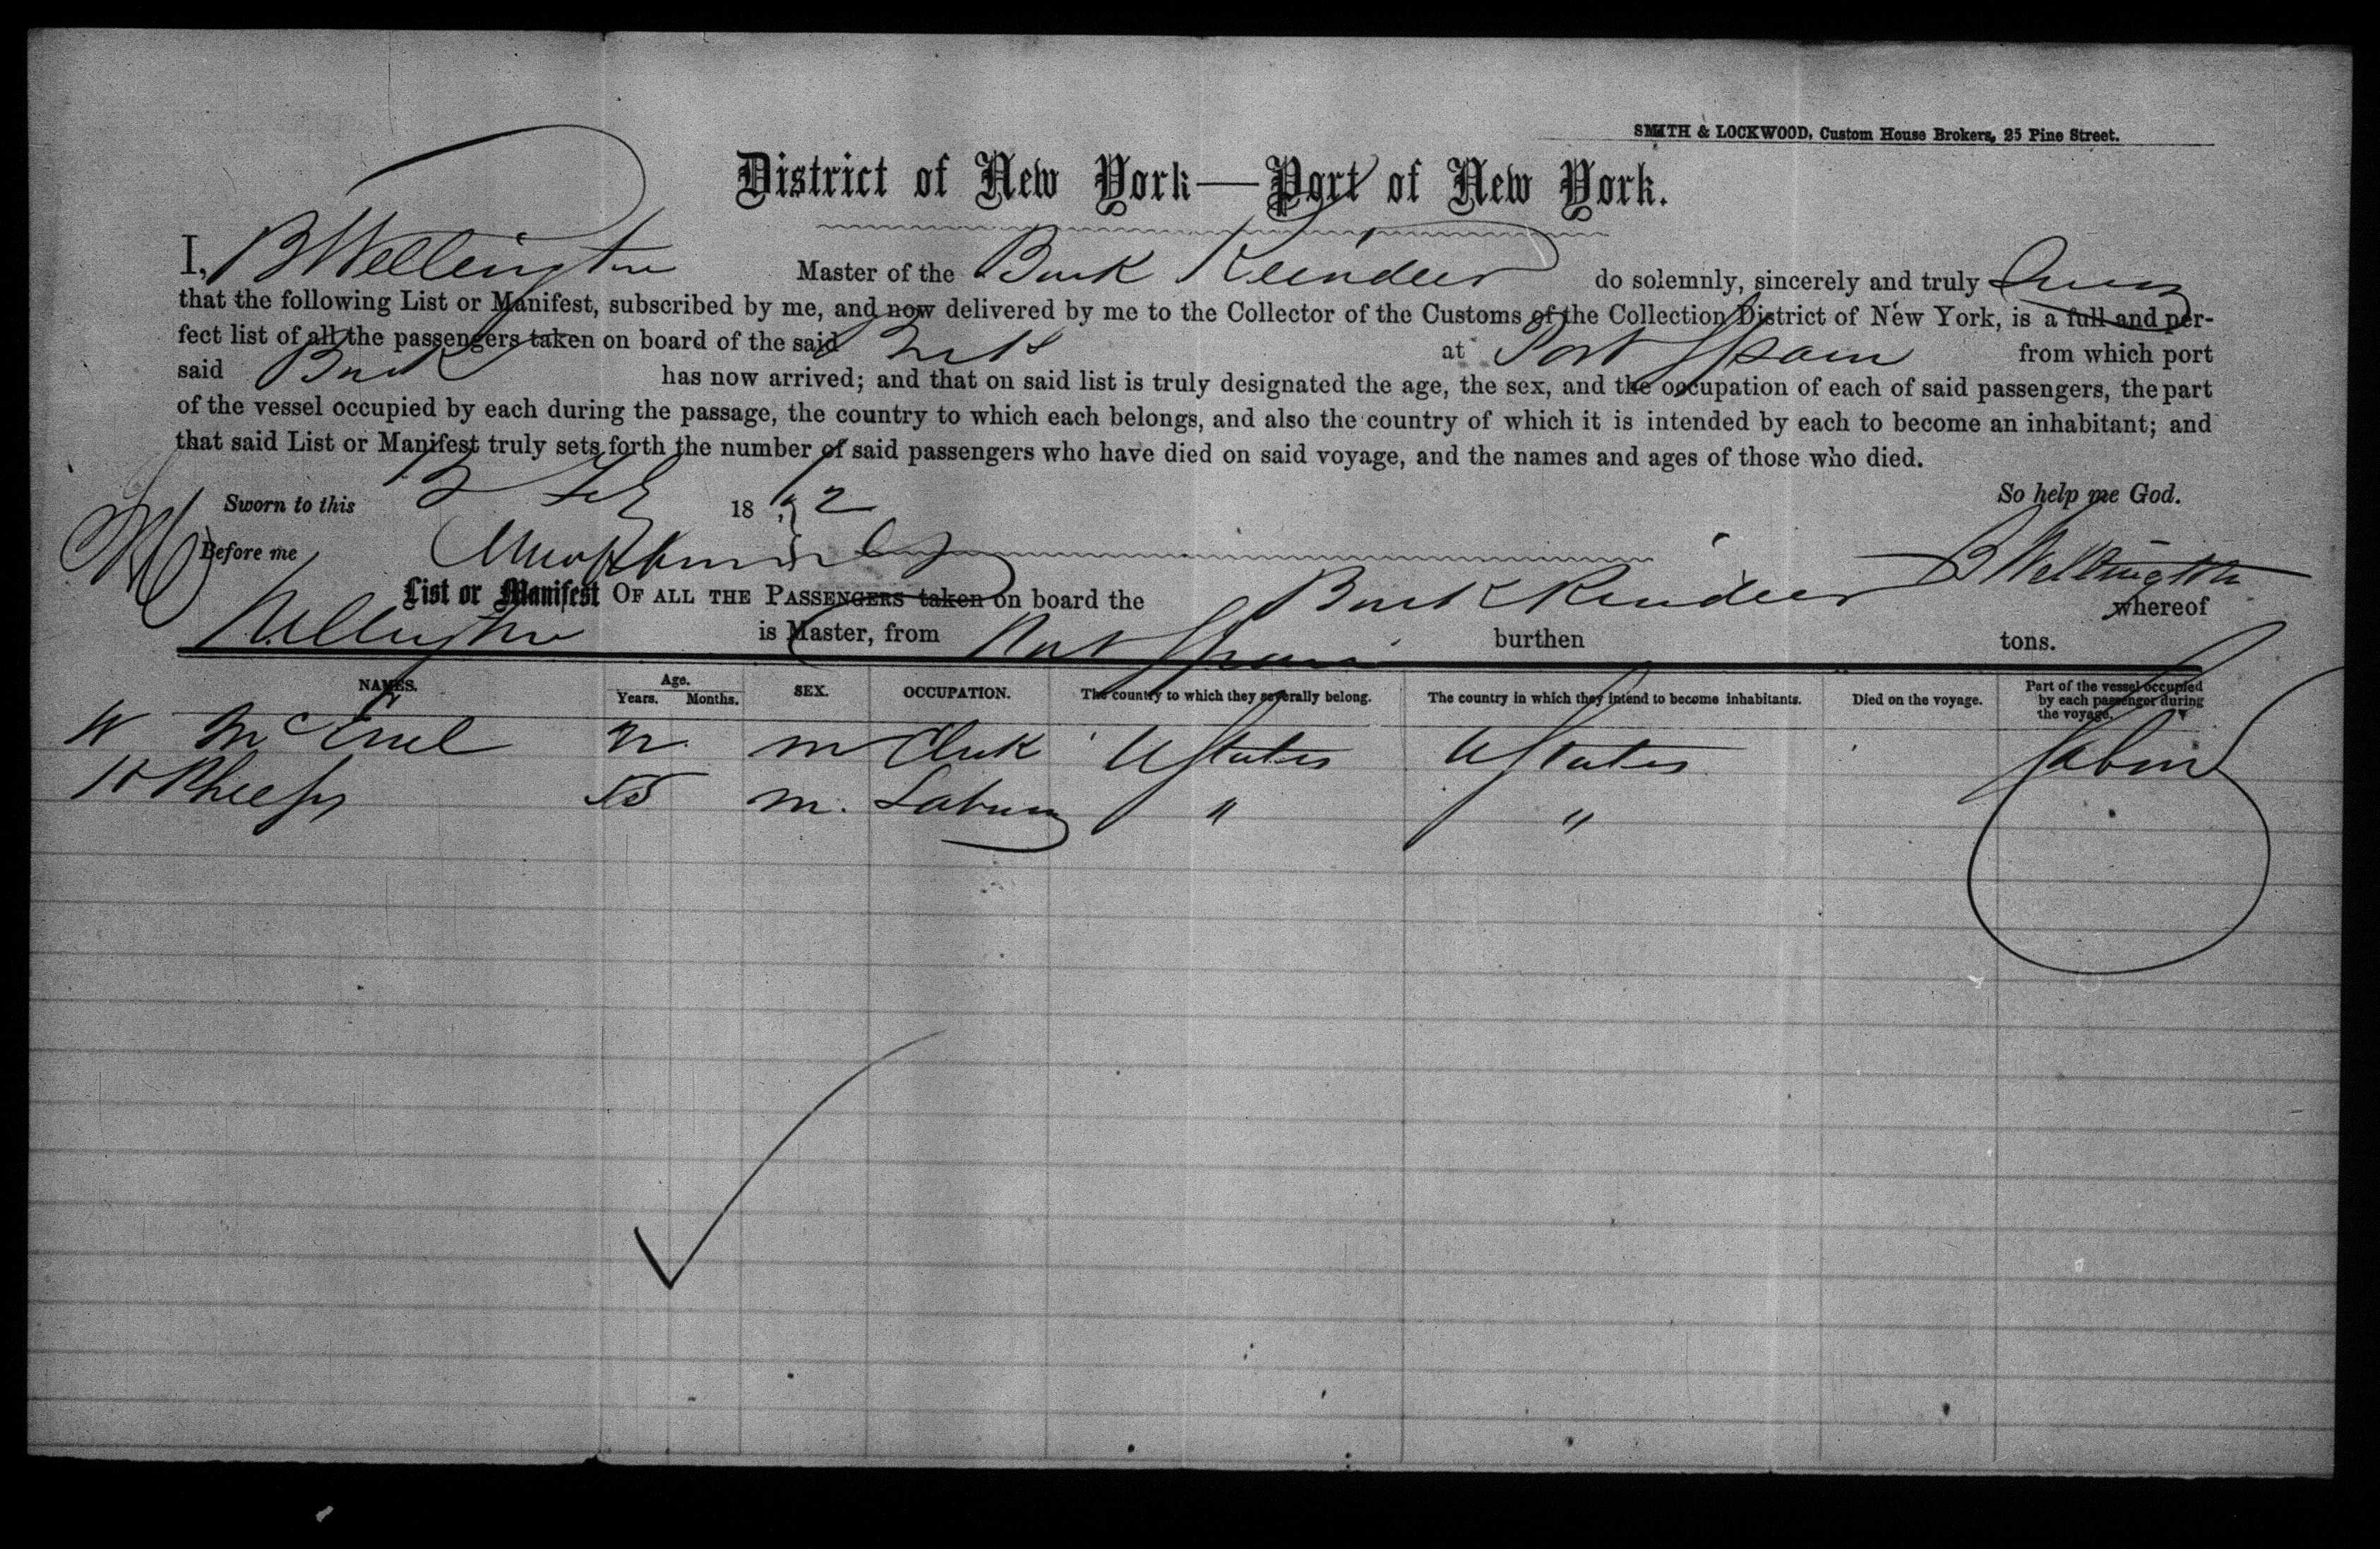 SMITH & LOCKWOOD, Custom House Brokers, 25 Pine Street.
District of New York—Port of New York.
I, B Wellington Master of the Bark Reindeer do solemnly, sincerely and truly Swear
that the following List or Manifest, subscribed by me, and now delivered by me to the Collector of the Customs of the Collection District of New York, is a full and per-
fect list of all the passengers taken on board of the said Bark at Port Spain from which port
said Bark has now arrived; and that on said list is truly designated the age, the sex, and the occupation of each of said passengers, the part
of the vessel occupied by each during the passage, the country to which each belongs, and also the country of which it is intended by each to become an inhabitant; and
that said List or Manifest truly sets forth the number of said passengers who have died on said voyage, and the names and ages of those who died.
Sworn to this 12 Feby 18 So help me God.
Before me B Wellington
List or Manifest OF ALL THE PASSENGERS taken on board the Bark Reindeer whereof
Wellington is Master, from Port Spain burthen tons.
NAMES. Age. Years. Months. SEX. OCCUPATION. The country to which they severally belong. The country in which they intend to become inhabitants. Died on the voyage. Part of the vessel occupied by each passenger during the voyage.
W m Clerk UStates UStates Cabin
m. " "